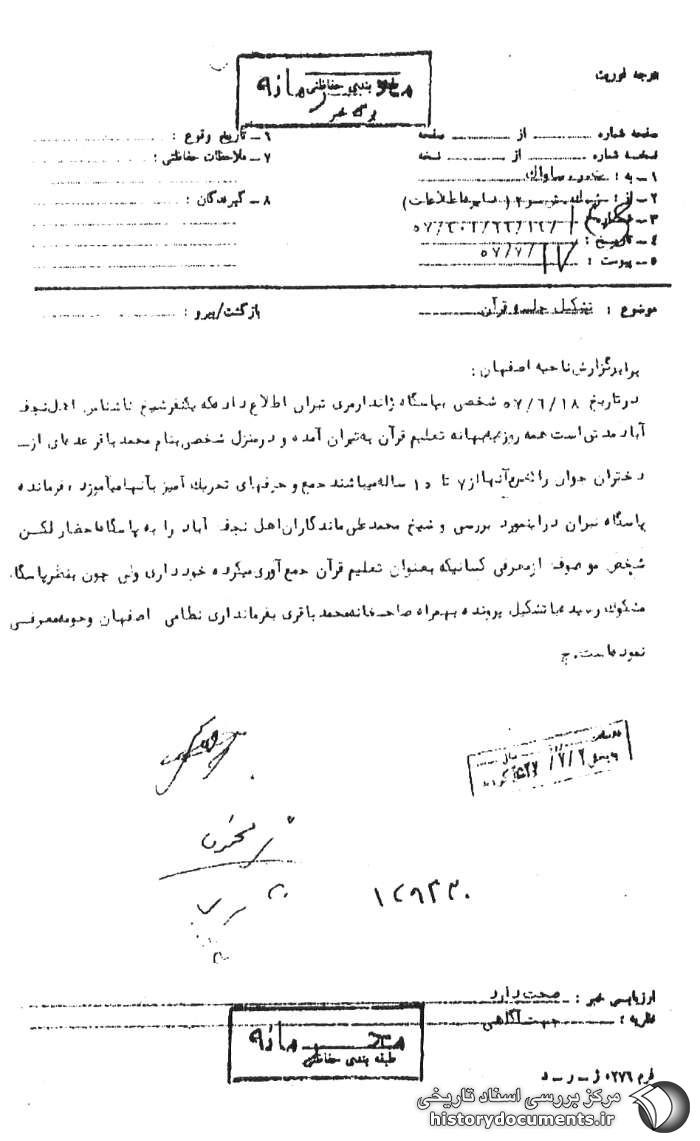 درجه فوریت
محرمانه
طبقه بندی حفاظتی
برگ خبر
صفحه شماره از صفحه
نسخه شماره از نسخه
۱ــ به :
۲ــ از :
۳ــ شماره ۵۷/۳۰۲/۲۲/۱۶/
۴ــ تاریخ : ۵۷/۷/۱۷
۵ــ پیوست :
۶ــ تاریخ وقوع :
۷ــ ملاحظات حفاظتی :
۸ــ گیرندگان :
موضوع : تشکیل جلسه قرآن
بازگشت/پیرو :
برابر گزارش ناحیه اصفهان :
در تاریخ ۵۷/۶/۱۸ شخصی بپاسگاه ژاندارمری تیران اطلاع داد که یکنفر شیخ ناشناس اهل نجف
آباد مدتی است همه روزه ببهانه تعلیم قرآن به تیران آمده و در منزل شخصی بنام محمد باقر عده‌ای از ــ
دختران جوان را که سن آنها از ۷ تا ۱۵ ساله میباشند جمع و حرفهای تحریک آمیز بآنها میآموزد ، فرمانده
پاسگاه تیران در اینمورد بررسی و شیخ محمد علی ماندگاران اهل نجف آباد را به پاسگاه احضار لکن
شخص موصوف از معرفی کسانیکه بعنوان تعلیم قرآن جمع آوری میکرده خودداری ولی چون بنظر پاسگاه
مشکوک رسیده با تشکیل پرونده بهمراه صاحبخانه محمد باقری بفرمانداری نظامی اصفهان و حومه معرفی
نموده است . ح
۱۲۹۲۳۰
ارزیابی خبر : صحت دارد
نظریه : جهت آگاهی
محرمانه
طبقه بندی حفاظتی
فرم ۰۲۷۶ ژ ــ ر ــ د
مرکز بررسی اسناد تاریخی
historydocuments.ir